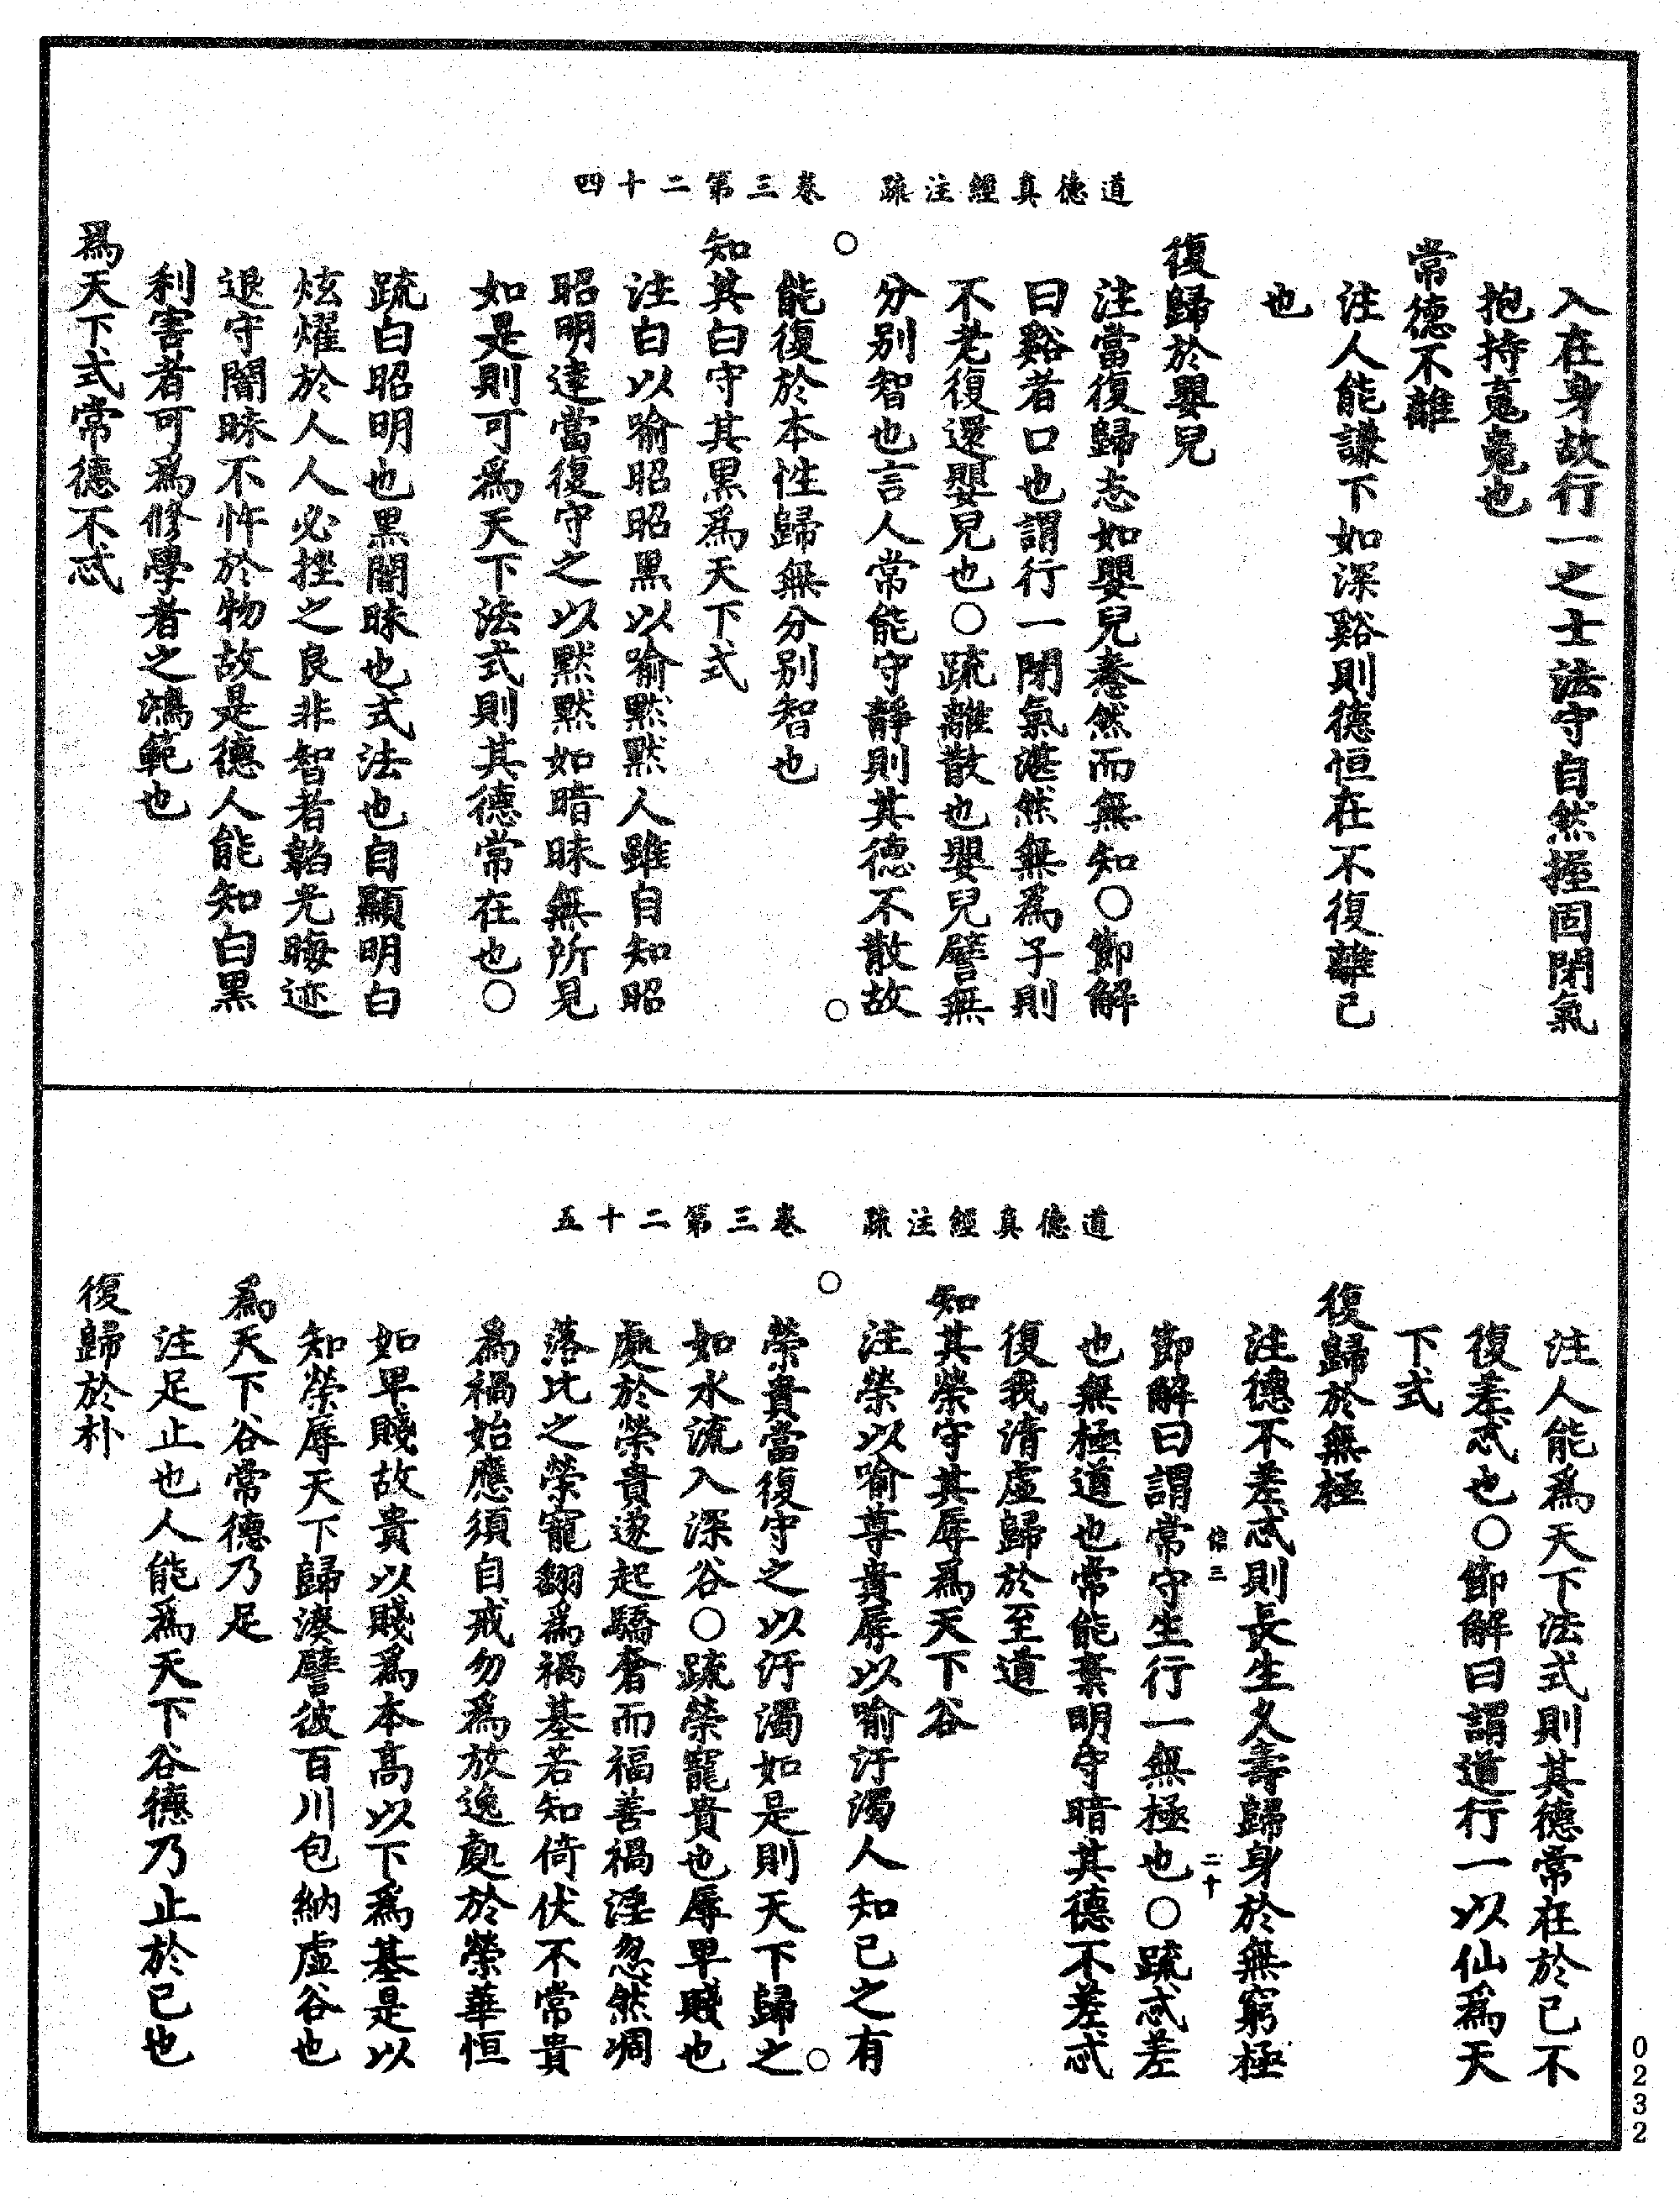 道德真經注疏　卷三第二十四
入在身故行一之士法守自然握固閉氣
抱持䰟魄也
常德不離
注人能謙下如深谿則德恒在不復離己
也
復歸於嬰兒
注當復歸志如嬰兒憃然而無知〇節解
曰谿者口也謂行一閉氣湛然無為子則
不老復還嬰兒也〇疏離散也嬰兒譬無
分別智也言人常能守靜則其德不散故
能復於本性歸無分別智也
知其白守其黑爲天下式
注白以喻昭昭黑以喻默默人雖自知昭
昭明達當復守之以默默如暗昧無所見
如是則可爲天下法式則其德常在也〇
疏白昭明也黑闇昧也式法也自顯明白
炫燿於人人必挫之良非智者韜光晦迹
退守闇昧不忤於物故是德人能知白黑
利害者可爲修學者之鴻範也
爲天下式常德不忒
道德真經注疏　卷三第二十五
注人能爲天下法式則其德常在於已不
復差忒也〇節解曰謂道行一以仙爲天
下式
復歸於無極
注德不差忒則長生久壽歸身於無窮極
節解曰謂常守生行一無極也〇疏忒差
也無極道也常能棄明守暗其德不差忒
復我清虛歸於至道
知其榮守其辱爲天下谷
注榮以喻尊貴辱以喻汙濁人知已之有
榮貴當復守之以汙濁如是則天下歸之
如水流入深谷〇疏榮寵貴也辱卑賤也
處於榮貴遂起驕奢而福善禍淫忽然凋
落比之榮寵翻爲禍基若知倚伏不常貴
爲禍始應須自戒勿爲放逸處於榮華恒
如卑賤故貴以賤爲本高以下爲基是以
知榮辱天下歸湊譬彼百川包納虛谷也
爲天下谷常德乃足
注足止也人能爲天下谷德乃止於已也
復歸於朴
三
二十
0232